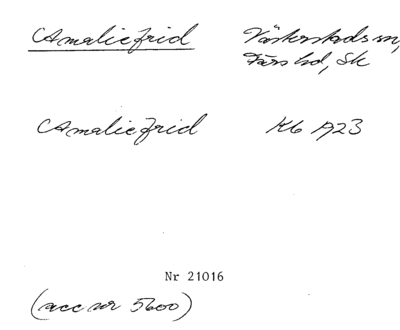 Amaliefrid Västerstads sn,
Färs hd, Sk
Amaliefrid Kb 1923
Nr 21016
(acc nr 5600)